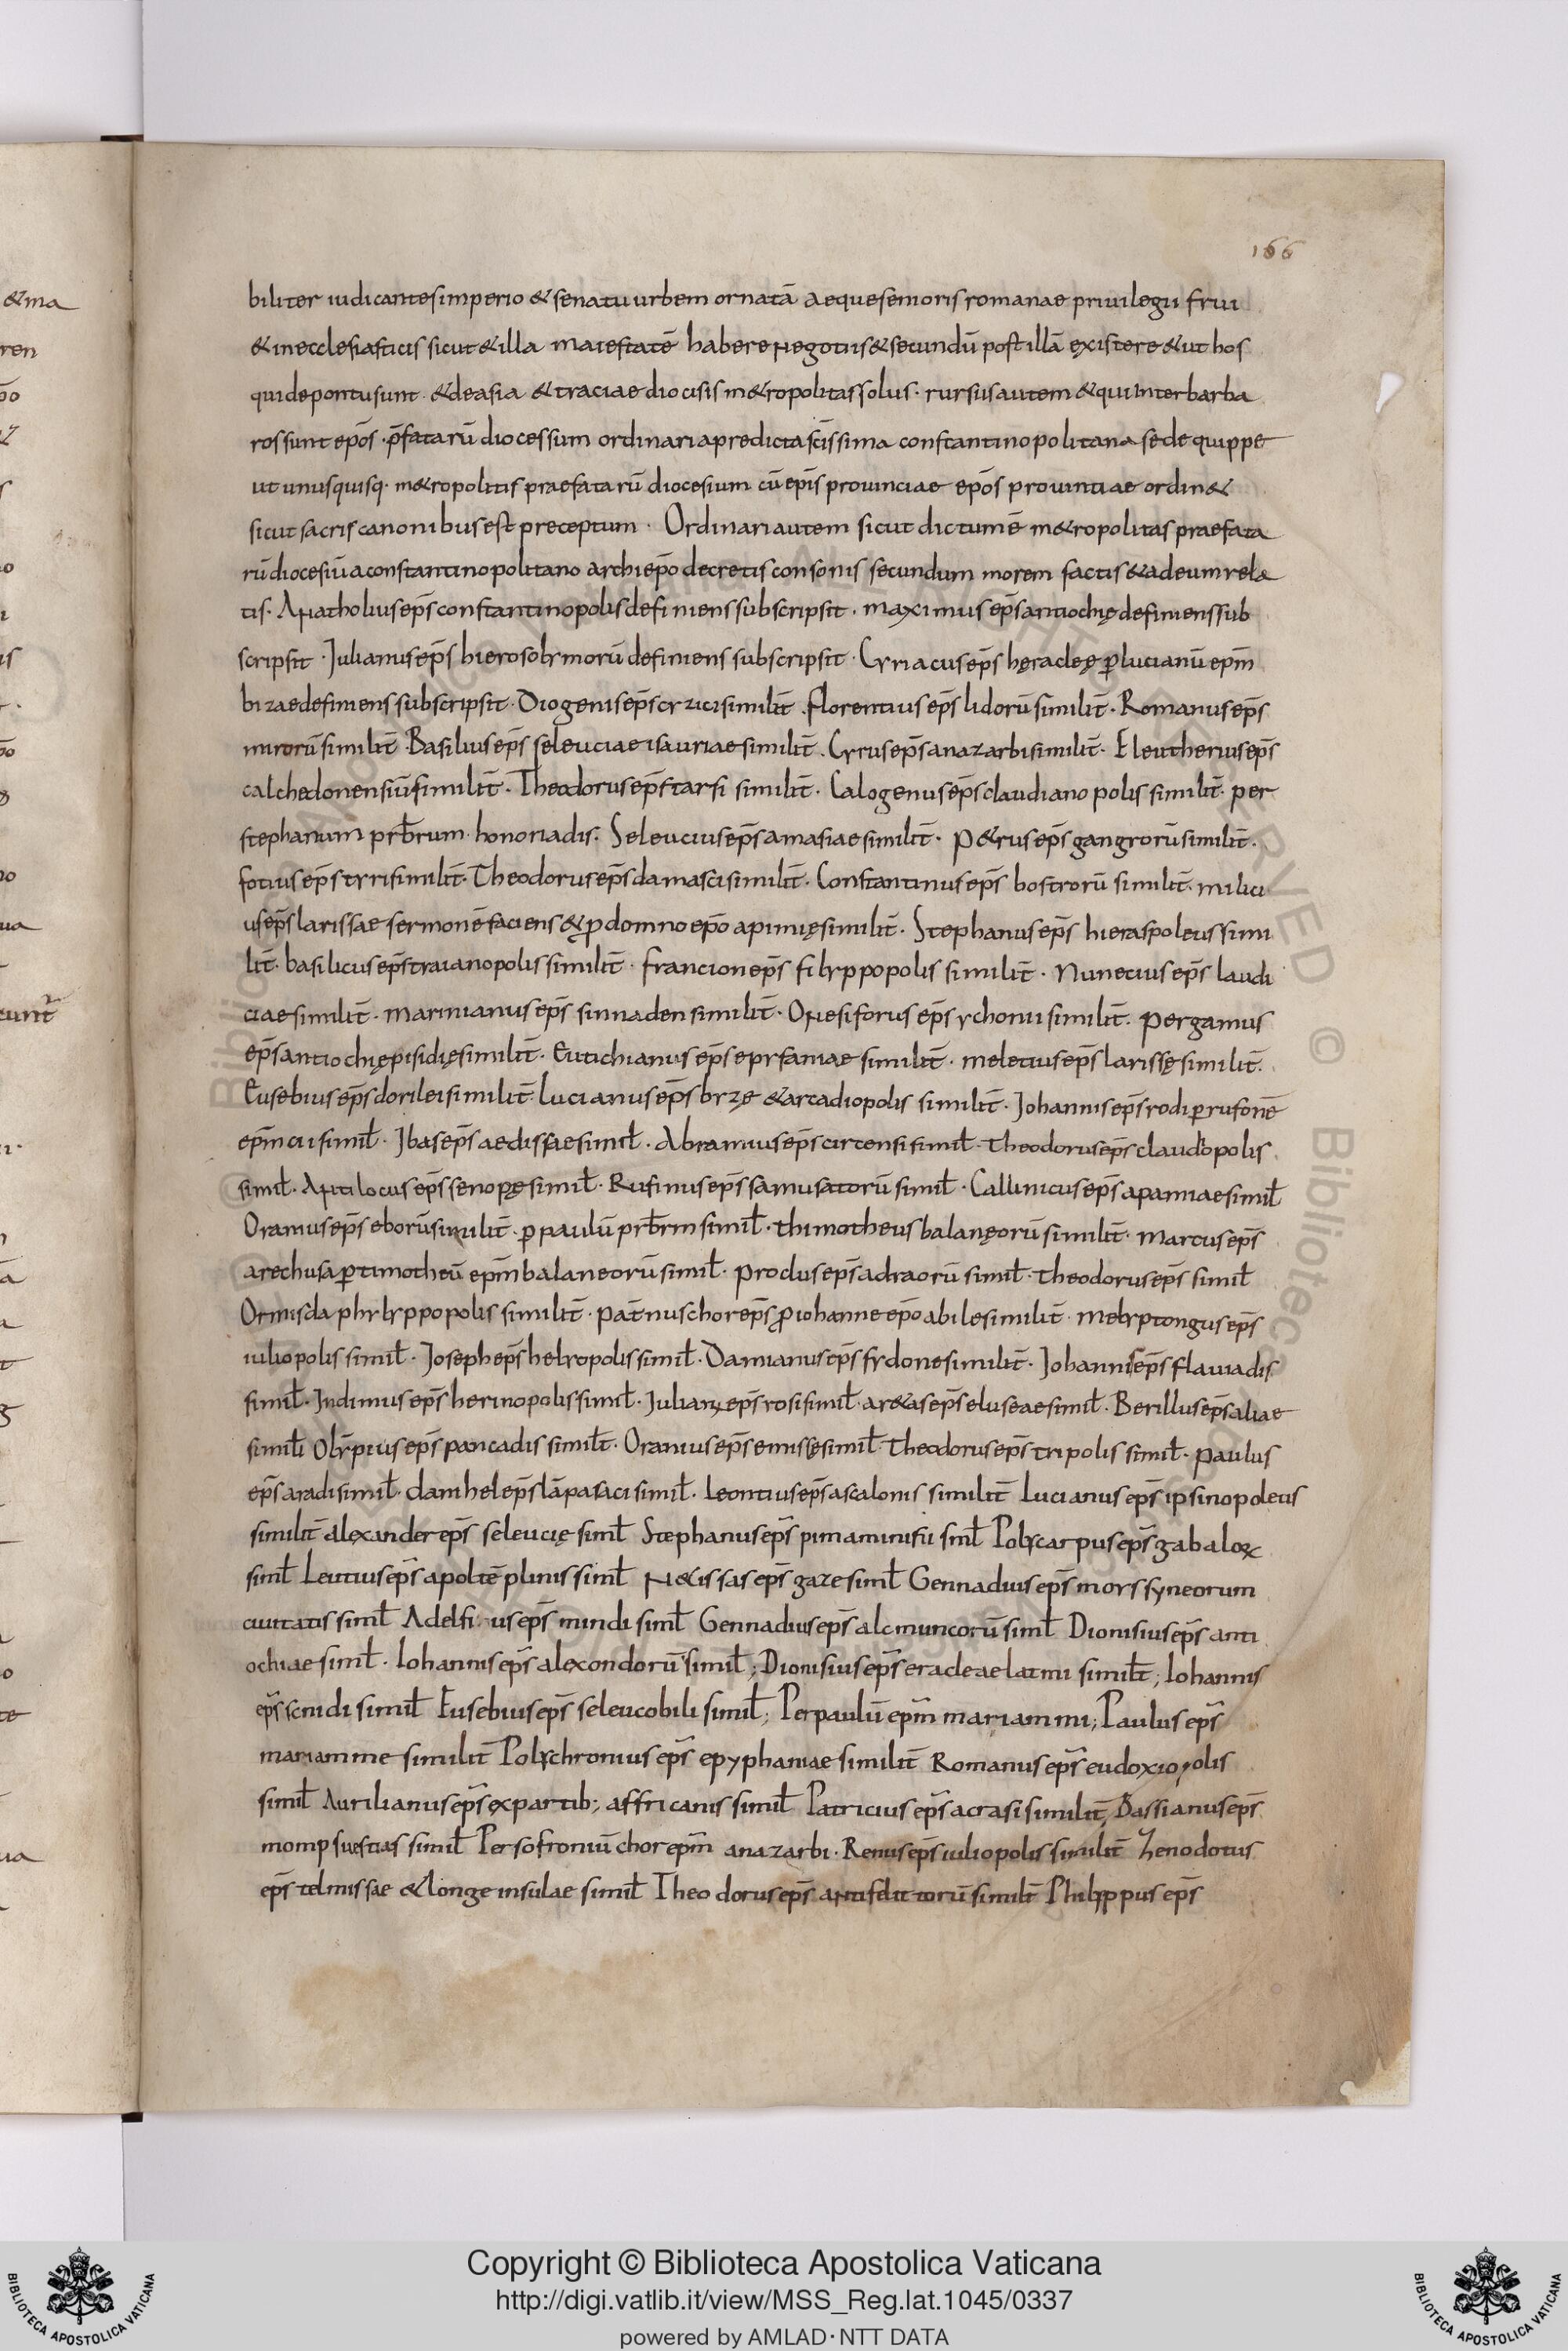 166
biliter iudicantes imperio & senatu urbem ornatā aeque senioris romanae privilegii frui
& in ecclesiasticis sicut & illa maiestatē habere negotiis & secundū post illā existere & ut hos
qui de pontu sunt & de asia & traciae diocisis m&ropolitas solus · rursus autem & qui inter barba
ros sunt ep̄os · p̄fatarū diocessum ordinari a predicta sc̄issima constantinopolitana sede quippe
ut unusquisq· m&ropolitis praefatarū diocesium cū ep̄is provinciae ep̄os provintiae ordin&
sicut sacris canonibus est preceptum · Ordinari autem sicut dictum ē m&ropolitas praefata
rū diocesiū a constantinopolitano archiep̄o decretis consonis secundum morem factis & ad eum rela
tis · Anatholius ep̄s constantinopolis definiens subscripsit · maximus ep̄s antiochię definiens sub
scripsit · Julianus ep̄s hierosolymorū definiens subscripsit · Cyriacus ep̄s hęracleę p̱ lucianū ep̄m
bizae definiens subscripsit · Diogenis ep̄s cyzici similit̄ · florentius ep̄s lidorū similit̄ · Romanus ep̄s
mirorū similit̄ · Basilius ep̄s seleuciae isauriae similit̄ · Cyrus ep̄s anazarbi similit̄ · Eleutherius ep̄s
calchedonensiū similit̄ · Theodorus ep̄s tarsi similit̄ · Calogenus ep̄s claudianopolis similit̄ · per
stephanum prb̄rum · honoriadis · Seleucius ep̄s amasiae similit̄ · P&rus ep̄s gangrorū similit̄ ·
fotius ep̄s tyri similit̄ · Theodorus ep̄s damasci similit̄ · Constantinus ep̄s bostrorū similit̄ · milici
us ep̄s larissae sermonē faciens & p̱ domno ep̄o apimię similit̄ · Stephanus ep̄s hieraspoleus simi
lit̄ · basilicus ep̄s traianopolis similit̄ · francion ep̄s filyppopolis similit̄ · Nunecius ep̄s laudi
ciae similit̄ · marinianus ep̄s sinnaden similit̄ · Onesiforus ep̄s ychonii similit̄ · pergamus
ep̄s antiochię pisidię similit̄ · Eutichianus ep̄s epyfaniae similit̄ · meletius ep̄s larissę similit̄ ·
Eusebius ep̄s dorilei similit̄ · lucianus ep̄s byzę & arcadiopolis similit̄ · Johannis ep̄s rodi p̱ rufonē
ep̄m cii simil̄ · Jbas ep̄s aedissae simil̄ · Abramius ep̄s circensi simil̄ · theodorus ep̄s claudopolis
simil̄ · Antilocus ep̄s senopę simil̄ · Rufinus ep̄s samusatorū simil̄ · Callinicus ep̄s apamiae simil̄
Oranius ep̄s eborū similit̄ · p̱ paulū prb̄rm simil̄ · thimotheus balanęorū similit̄ · marcus ep̄s
arechusa p̱ timotheū ep̄m balaneorū simil̄ · proclus ep̄s adraorū simil̄ · theodorus ep̄s simil̄
Ormisda phylyppopolis similit̄ · pat̄nus chorep̄s p̱ iohanne ep̄o abile similit̄ · melyptongus ep̄s
iuliopolis simil̄ · Joseph ep̄s helyopolis simil̄ · Damianus ep̄s sydone similit̄ · Johannis ep̄s flaviadis
simil̄ · Indimus ep̄s herinopolis simil̄ · Julian; ep̄s rosi simil̄ · ar&as ep̄s eluseae simil̄ · Berillus ep̄s aliae
simili Olȳpius ep̄s pancadis simil̄t · Oranius ep̄s emissę simil̄ · theodorus ep̄s tripolis simil̄ · paulus
ep̄s aradi simil̄ · danihel ep̄s lāpasaci simil̄ · Leontius ep̄s ascalonis similit̄ Lucianus ep̄s ipsinopoleus
similit̄ alexander ep̄s seleucię siml̄ Stephanus ep̄s pimaminisii sml̄ Polycarpus ep̄s gabaloꝝ
siml̄ Leutius ep̄s apoltē plinis siml̄ N&issas ep̄s gaze siml̄ Gennadius ep̄s morssyneorum
civitatis siml̄ Adelfi us ep̄s mindi siml̄ Gennadius ep̄s alcmuncorū siml̄ Dionisius ep̄s anti
ochiae siml̄ · Iohannis ep̄s alexondorū simil̄; Dionisius ep̄s eracleae latmi simil̄t; Iohannis
ep̄s scnidi simil̄ Eusebius ep̄s seleucobili simil̄; Per paulū ep̄m mariammi; Paulus ep̄s
mariamme similit̄ Polychronius ep̄s epyphaniae similit̄ Romanus ep̄s eudoxiopolis
simil̄ Aurilianus ep̄s ex partib; affricanis simil̄ Patricius ep̄s acrasi similit̄, Bassianus ep̄s
mompsuestias simil̄ Per sofroniū chorep̄m anazarbi · Renus ep̄s iuliopolis similit̄ Zenodotus
ep̄s telmissae & longe insulae simil̄ Theodorus ep̄s antifelittorū simil̄t Philyppus ep̄s
Copyright © Biblioteca Apostolica Vaticana
http://digi.vatlib.it/view/MSS_Reg.lat.1045/0337
powered by AMLAD·NTT DATA
BIBLIOTECA APOSTOLICA VATICANA
BIBLIOTECA APOSTOLICA VATICANA